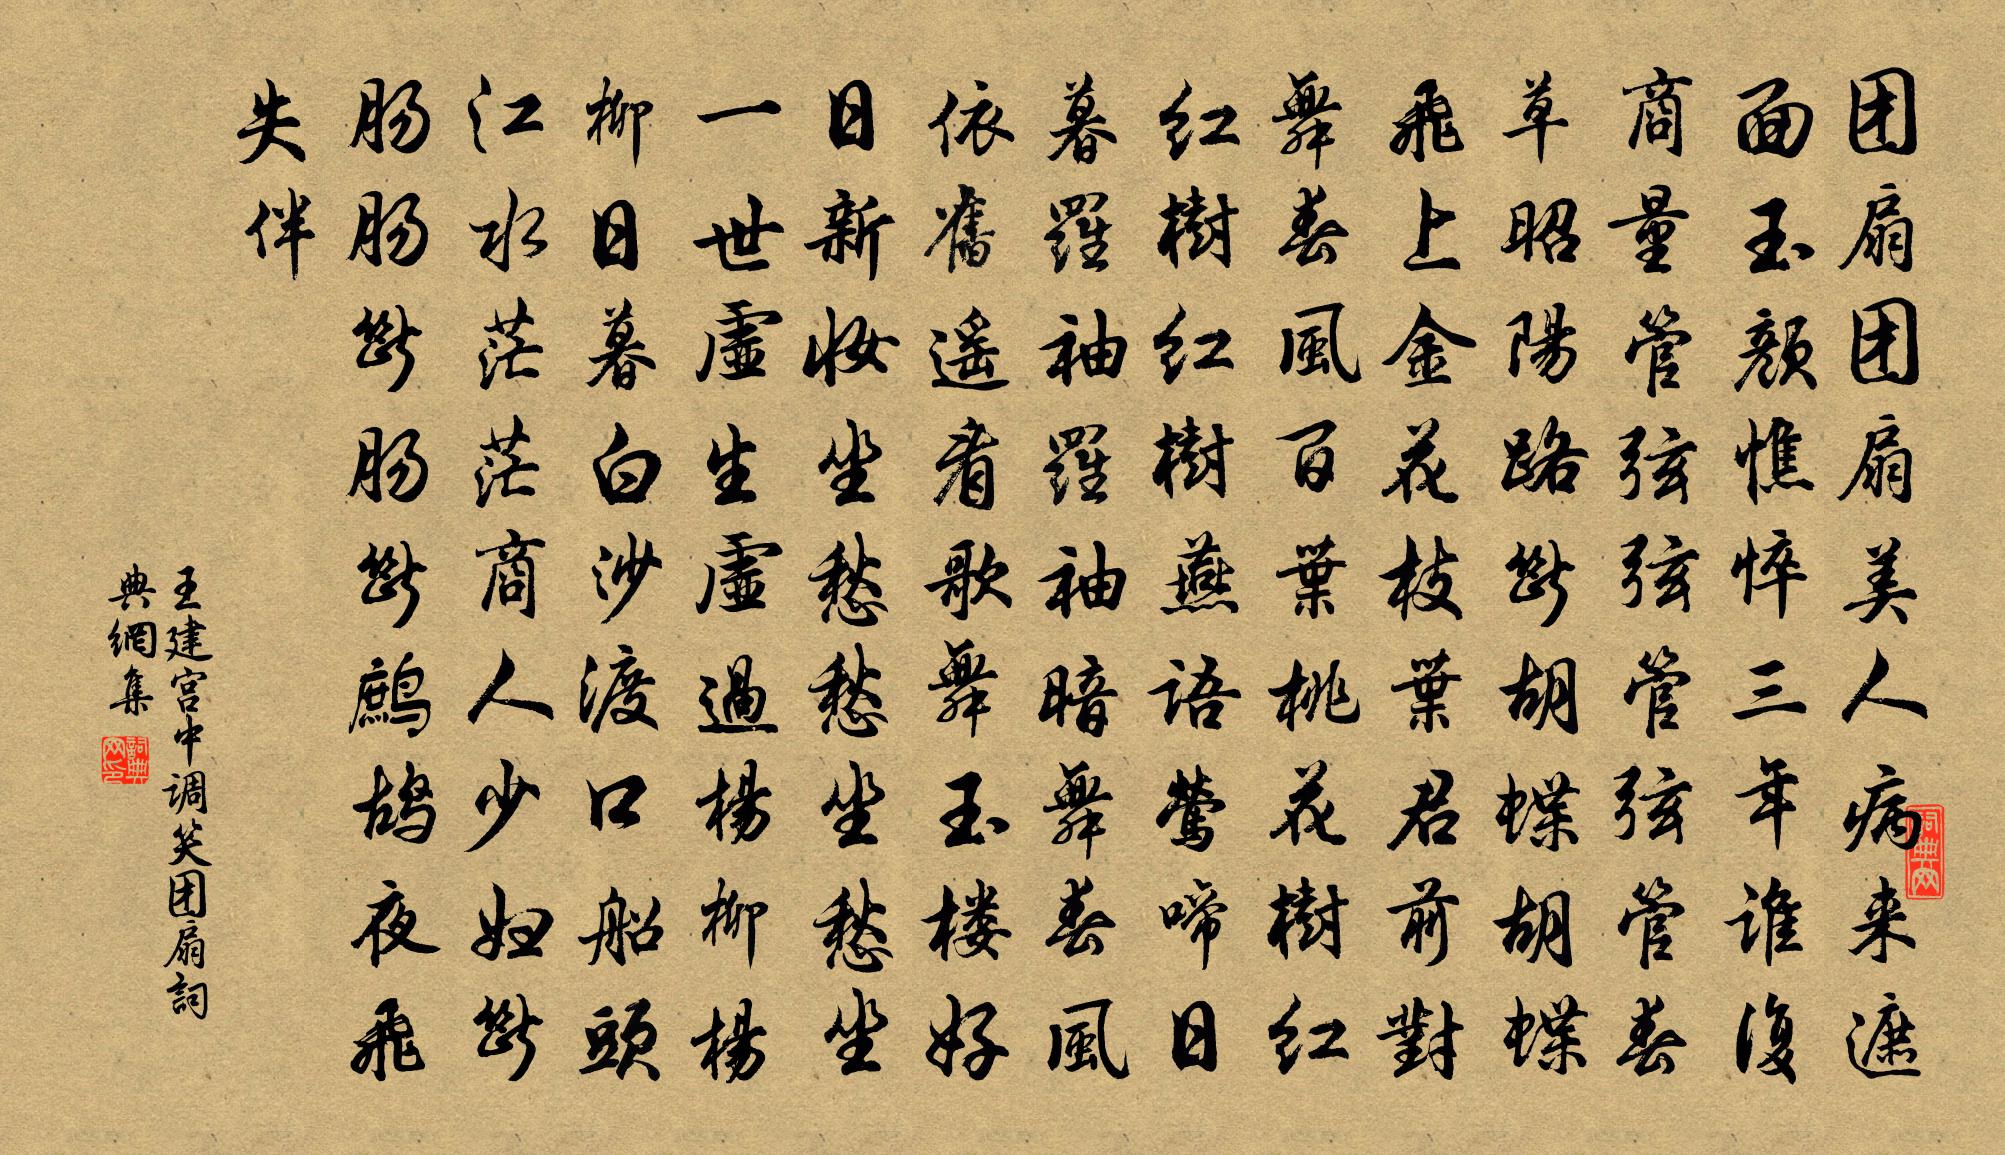 团扇团扇美人病来遮
面玉颜憔悴三年谁復
商量管弦弦管弦管春
草昭陽路斷胡蝶胡蝶
飛上金花枝葉君前對
舞春風百葉桃花樹紅
紅樹紅樹燕語鶯啼日
暮羅袖羅袖暗舞春風
依舊遥看歌舞玉楼好
日新妝坐愁愁坐愁坐
一世虛生虛過楊柳楊
柳日暮白沙渡口船頭
江水茫茫商人少婦斷
肠肠斷肠斷鷓鴣夜飛
失伴
王建宫中调笑团扇詞
典網集
詞典网
詞典网印